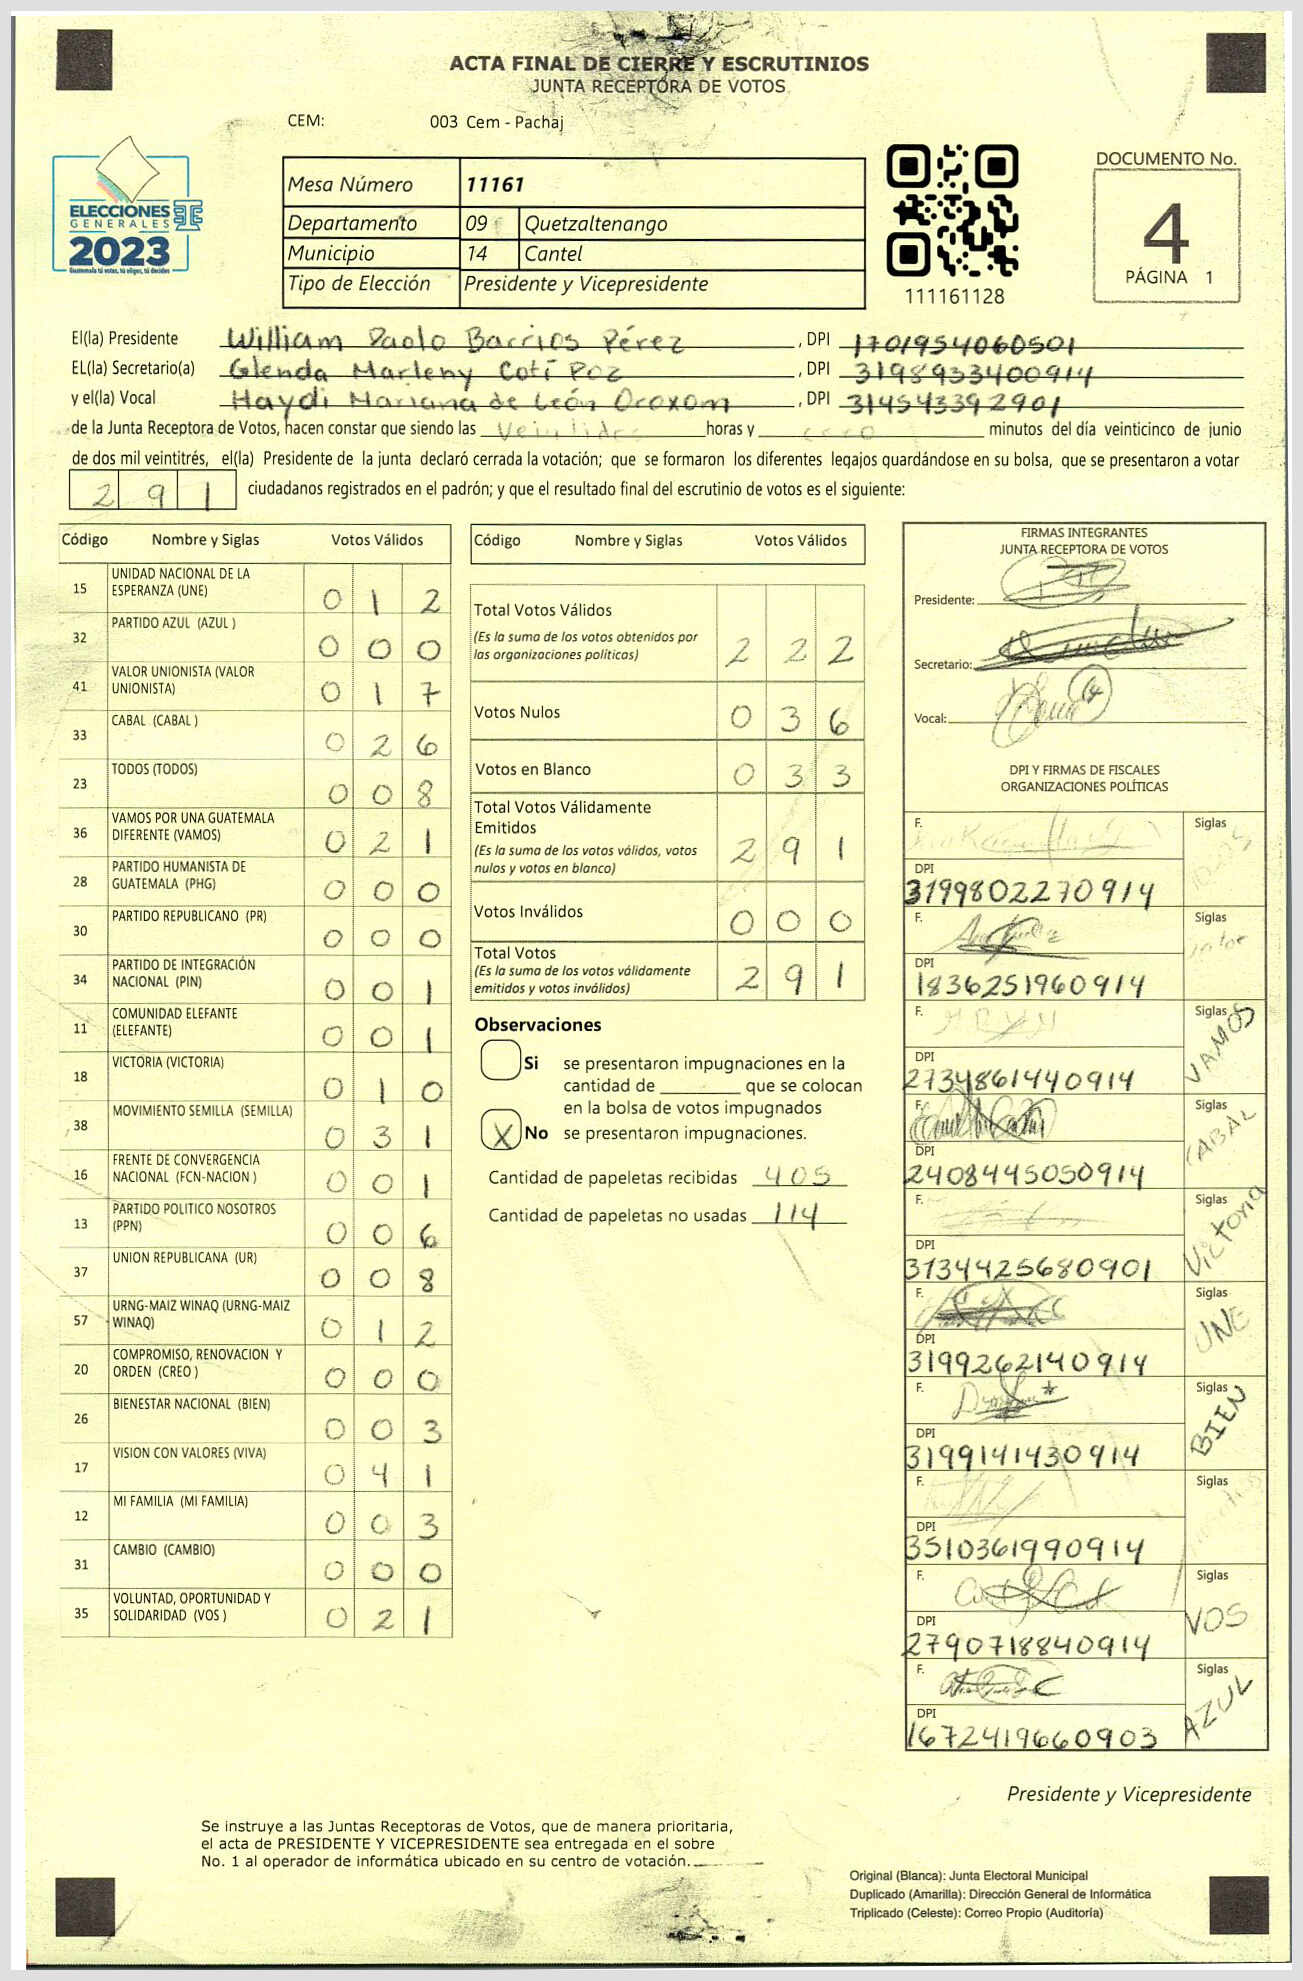 ACTA FINAL DE CIERRE Y ESCRUTINIOS
JUNTA RECEPTORA DE VOTOS
CEM: 003 Cem - Pachaj
ELECCIONES
GENERALES
2023
Guatemala tú votas, tú eliges, tú decides
Mesa Número 11161
Departamento 09 Quetzaltenango
Municipio 14 Cantel
Tipo de Elección Presidente y Vicepresidente
111161128
DOCUMENTO No.
4
PÁGINA 1
El(la) Presidente William Paolo Barrios Pérez, DPI 1701954060501
EL(la) Secretario(a) Glenda Marleny Cotí Poz, DPI 3198933400914
y el(la) Vocal Haydi Mariana de León Oroxom, DPI 314543392901
de la Junta Receptora de Votos, hacen constar que siendo las Veintidos horas y cero minutos del día veinticinco de junio
de dos mil veintitrés, el(la) Presidente de la junta declaró cerrada la votación; que se formaron los diferentes legajos guardándose en su bolsa, que se presentaron a votar
291 ciudadanos registrados en el padrón; y que el resultado final del escrutinio de votos es el siguiente:
Código Nombre y Siglas Votos Válidos
15 UNIDAD NACIONAL DE LA ESPERANZA (UNE) 012
32 PARTIDO AZUL (AZUL ) 000
41 VALOR UNIONISTA (VALOR UNIONISTA) 017
33 CABAL (CABAL ) 026
23 TODOS (TODOS) 008
36 VAMOS POR UNA GUATEMALA DIFERENTE (VAMOS) 021
28 PARTIDO HUMANISTA DE GUATEMALA (PHG) 000
30 PARTIDO REPUBLICANO (PR) 000
34 PARTIDO DE INTEGRACIÓN NACIONAL (PIN) 001
11 COMUNIDAD ELEFANTE (ELEFANTE) 001
18 VICTORIA (VICTORIA) 010
38 MOVIMIENTO SEMILLA (SEMILLA) 031
16 FRENTE DE CONVERGENCIA NACIONAL (FCN-NACION ) 001
13 PARTIDO POLITICO NOSOTROS (PPN) 006
37 UNION REPUBLICANA (UR) 008
57 URNG-MAIZ WINAQ (URNG-MAIZ WINAQ) 012
20 COMPROMISO, RENOVACION Y ORDEN (CREO ) 000
26 BIENESTAR NACIONAL (BIEN) 003
17 VISION CON VALORES (VIVA) 041
12 MI FAMILIA (MI FAMILIA) 003
31 CAMBIO (CAMBIO) 000
35 VOLUNTAD, OPORTUNIDAD Y SOLIDARIDAD (VOS ) 021
Código Nombre y Siglas Votos Válidos
Total Votos Válidos 222
(Es la suma de los votos obtenidos por
las organizaciones políticas)
Votos Nulos 036
Votos en Blanco 033
Total Votos Válidamente
Emitidos 291
(Es la suma de los votos válidos, votos
nulos y votos en blanco)
Votos Inválidos 000
Total Votos 291
(Es la suma de los votos válidamente
emitidos y votos inválidos)
Observaciones
Si se presentaron impugnaciones en la
cantidad de ________ que se colocan
en la bolsa de votos impugnados
X No se presentaron impugnaciones.
Cantidad de papeletas recibidas 405
Cantidad de papeletas no usadas 114
FIRMAS INTEGRANTES
JUNTA RECEPTORA DE VOTOS
Presidente:
Secretario:
Vocal:
DPI Y FIRMAS DE FISCALES
ORGANIZACIONES POLÍTICAS
F. Siglas
DPI
3199802270914
F. Siglas
DPI
1836251960914
F. Siglas VAMOS
DPI
2734861440914
F. Siglas CABAL
DPI
2408445050914
F. Siglas Victoria
DPI
3134425680901
F. Siglas UNE
DPI
3199262140914
F. Siglas BIEN
DPI
3199141430914
F. Siglas
DPI
3510361990914
F. Siglas VOS
DPI
2790718840914
F. Siglas AZUL
DPI
1672419660903
Presidente y Vicepresidente
Se instruye a las Juntas Receptoras de Votos, que de manera prioritaria,
el acta de PRESIDENTE Y VICEPRESIDENTE sea entregada en el sobre
No. 1 al operador de informática ubicado en su centro de votación.
Original (Blanca): Junta Electoral Municipal
Duplicado (Amarilla): Dirección General de Informática
Triplicado (Celeste): Correo Propio (Auditoría)